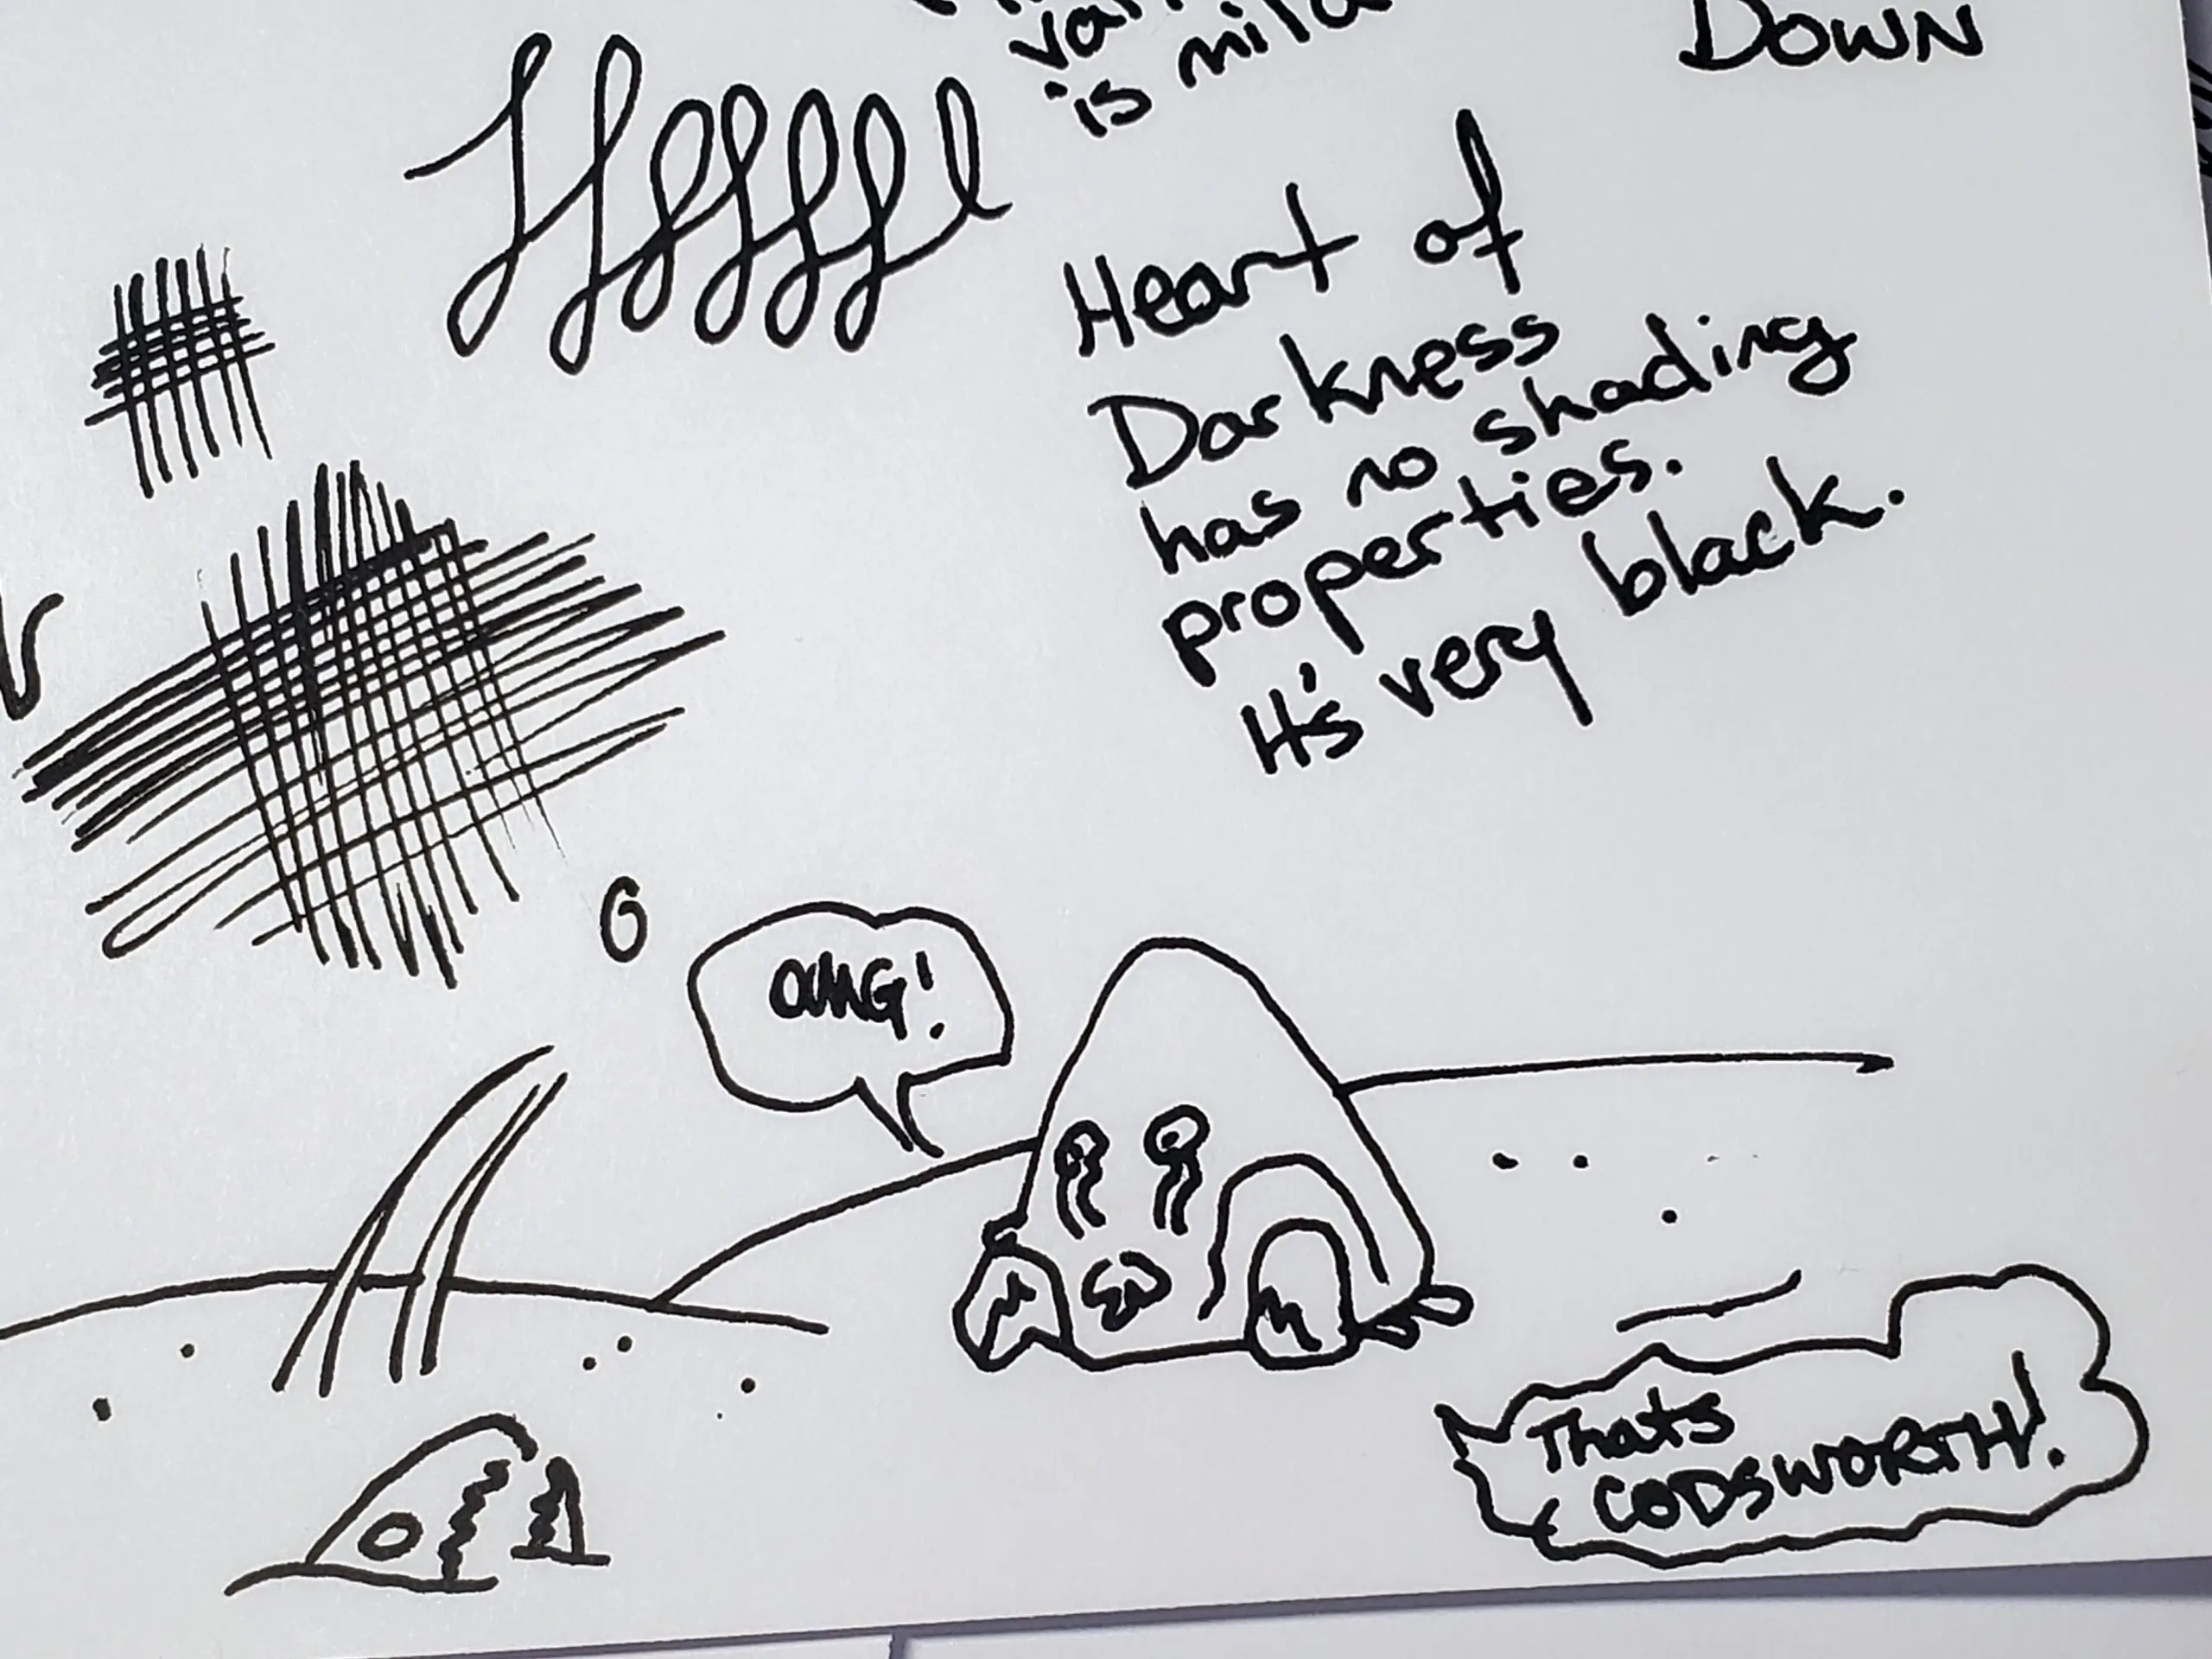 is mild
DOWN
Heart of
Darkness
has no shading
properties.
It's very black.
OMG!
Thats
CODSWORTH!